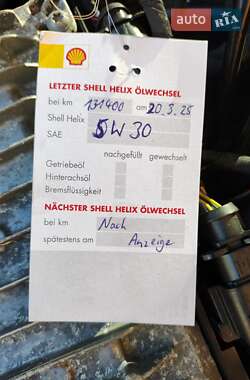 AUTO
RIA
LETZTER SHELL HELIX ÖLWECHSEL
bei km 131400 am 20.3.25
Shell Helix
SAE 5W30
nachgefüllt gewechselt
Getriebeöl
Hinterachsöl
Bremsflüssigkeit
NÄCHSTER SHELL HELIX ÖLWECHSEL
bei km Nach
spätestens am Anzeige